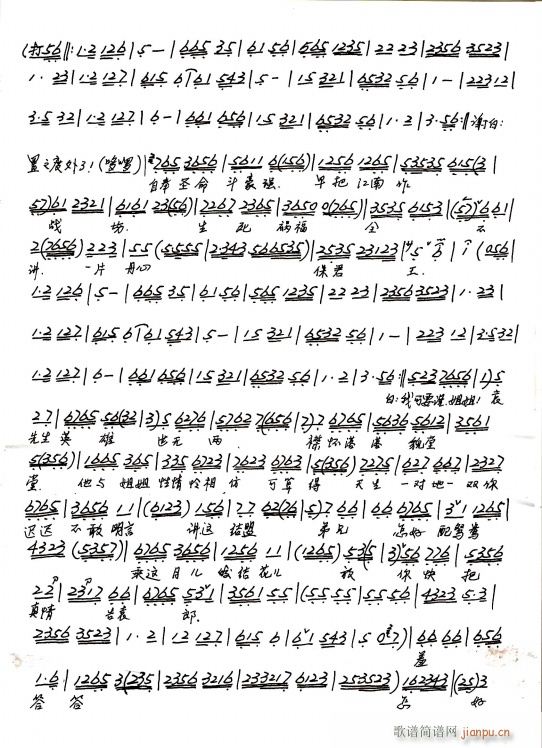 (打56‖: 1·2 126 | 5 — | 665 35 | 61 56 | 565 1235 | 22 23 | 2356 3523 |
1· 23 | 12 127 | 615 6 61 | 61 543 | 5 - | 15 321 | 6532 56 | 1 — | 223 12 |
3·5 32 | 12 127 | 6 - | 661 656 | 15 321 | 6532 56 | 1·2 | 3·56 :‖ 谢白:
置之度外了! (噔噔) | 765 3656 | 5611 6(156) | 1256 1265 | 53535 615(3 |
自奉圣命 斗袁强. 早把江南作
57)61 2321 | 6161 23(56) | 2267 2365 | 3650 0(765) | 3535 6153 | (57)661 |
战 场. 生死祸福 全 不
2(7656) | 223 | 55 (5555 | 2343 566535) | 2535 23123 | 5 6 | i (056 |
讲. 一片丹心 保君 王.
1·2 126 | 5 — | 665 35 | 61 56 | 565 1235 | 22 23 | 2356 3523 | 1· 23 |
1·2 127 | 615 6 61 | 61 543 | 5 — | 15 321 | 6532 56 | 1 — | 223 12 | 3·5 32 |
1·2 127 | 6 — | 661 656 | 15 321 | 6532 56 | 1·2 | 3·56 :‖ 5237656 | 1) 5
白: 我可要谎姐姐! 袁
27 | 6765 56(32 | 3) 5 6276 | 57627(656 | 7)7 6765 | 5636 5612 | 3561
先生英雄 也无两. 襟怀湛湛貌堂
5(356) | 1665 365 | 335 6723 | 7623 6763 | 5(356) 7275 | 627 667 | 2327
堂. 他与姐姐性情恰相仿 可算得 天生一对地一双你
6765 | 3656 11 | (6123) 156 | 77 62(76 | 5)7 | 67 65 | 3 1265 |
迟迟 不敢明言 讲这结盟 弟兄 怎好配鸳鸯
4323 (5357) | 6765 3656 | 1256 11 | (1265 53(5 | 3) 56 776 | 5356
乘这月儿 绘结花儿 放 你快把
22 | 2317 66 | 6765 53 1 | 3561 55 | (55 55 | 55 56 | 4323 5·3 |
真情 告袁 郎.
2356 3523 | 1·2 | 12 127 | 615 6 | 6 1 543 | 5 0 7) | 66 66 | 656
羞
1·6 | 1265 3(235 | 2356 3216 | 233217 6123 | 253523) 162343 | (25)3
答 答 怎 好
歌谱简谱网 jianpu.cn